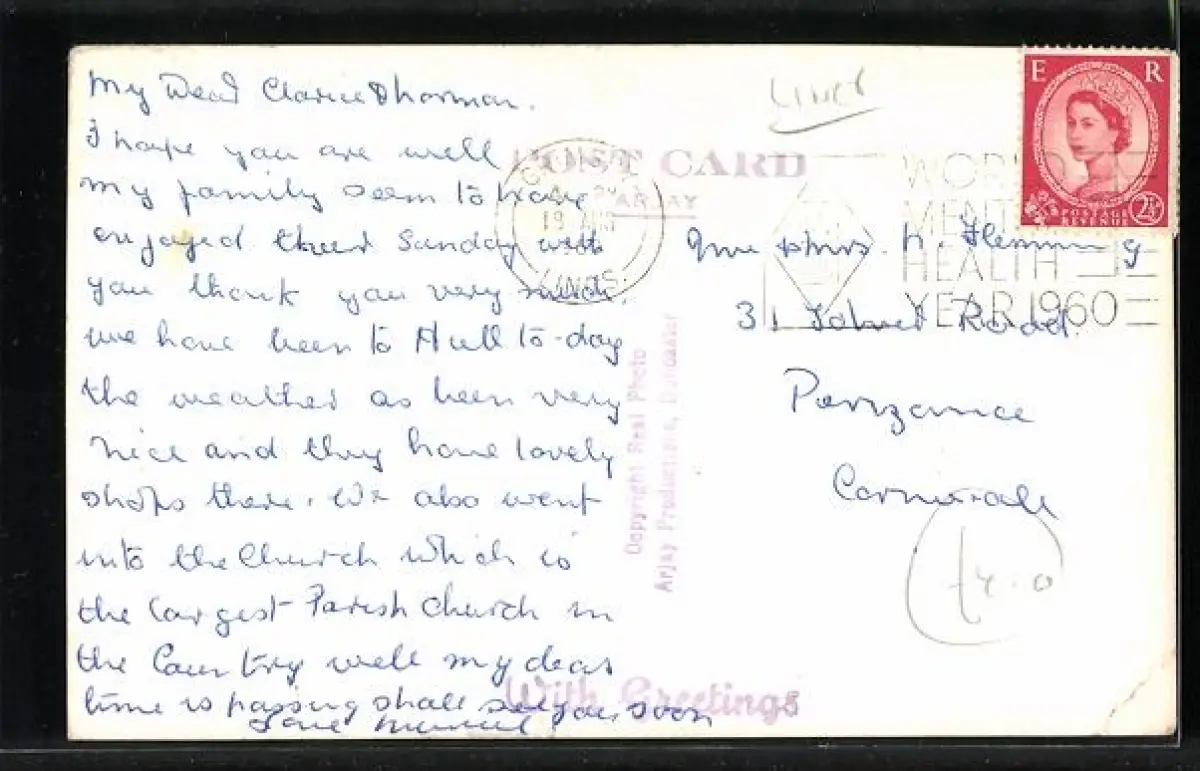 My Dear Clarice & Norman.
I hope you are well
my family seem to have
enjoyed their Sunday with
you thank you very much.
we have been to Hull to-day
the weather as been very
nice and they have lovely
shops there. We also went
into the Church which is
the largest Parish Church in
the Country well my dears
time is passing shall see you soon
Love
LINCS
POST CARD
ARJAY
19
LINCS
WORLD
MENTAL
HEALTH
YEAR 1960
E R
POSTAGE
REVENUE
2½
Mr & Mrs N. Flemming
31 Road.
Penzance
Cornwall
£4.0
Copyright Real Photo
Arjay Productions, Doncaster
With Greetings